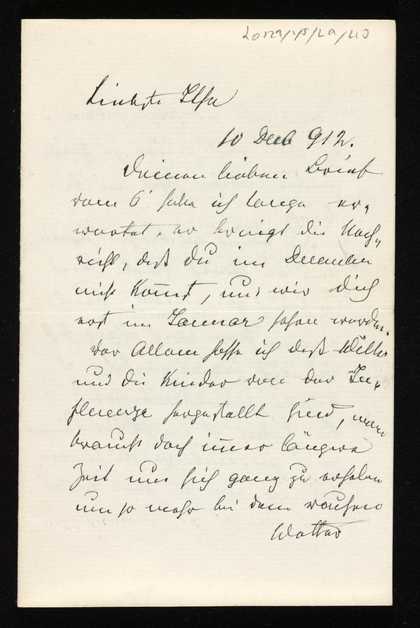 Liebste Ilse
10 Decb 912.
Deinen lieben Brief
vom 6' habe ich lange er„
wartet, er bringt die Nach„
richt, daß du im December
nicht kömst, und wir dich
erst im Januar sehen werden.
Vor Allem hoffe ich daß Willi
und die Kinder von der In„
fluenza hergestellt sind, man
braucht doch imer längere
Zeit um sich ganz zu erholen
um so mehr bei dem rauhen
Wetter